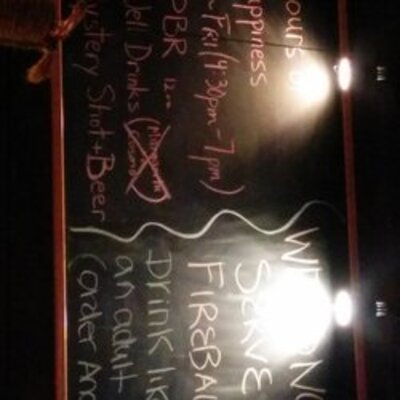 ours o
appiness
FRI (4:30pm-7pm)
PBR 12oz
Well Drinks
ystery Shot + Beer
WE ONG
SERVE
FIREBAL
DRINK LIK
an adult
(order An